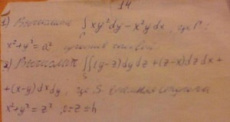 14
1) Вычислить ∫ xy²dy - x²y dx, где Γ:
x²+y²=a²
2) Вычислить ∬(y-z)dydz+(z-x)dzdx+
+(x-y)dxdy, где S
x²+y²=z² z=h